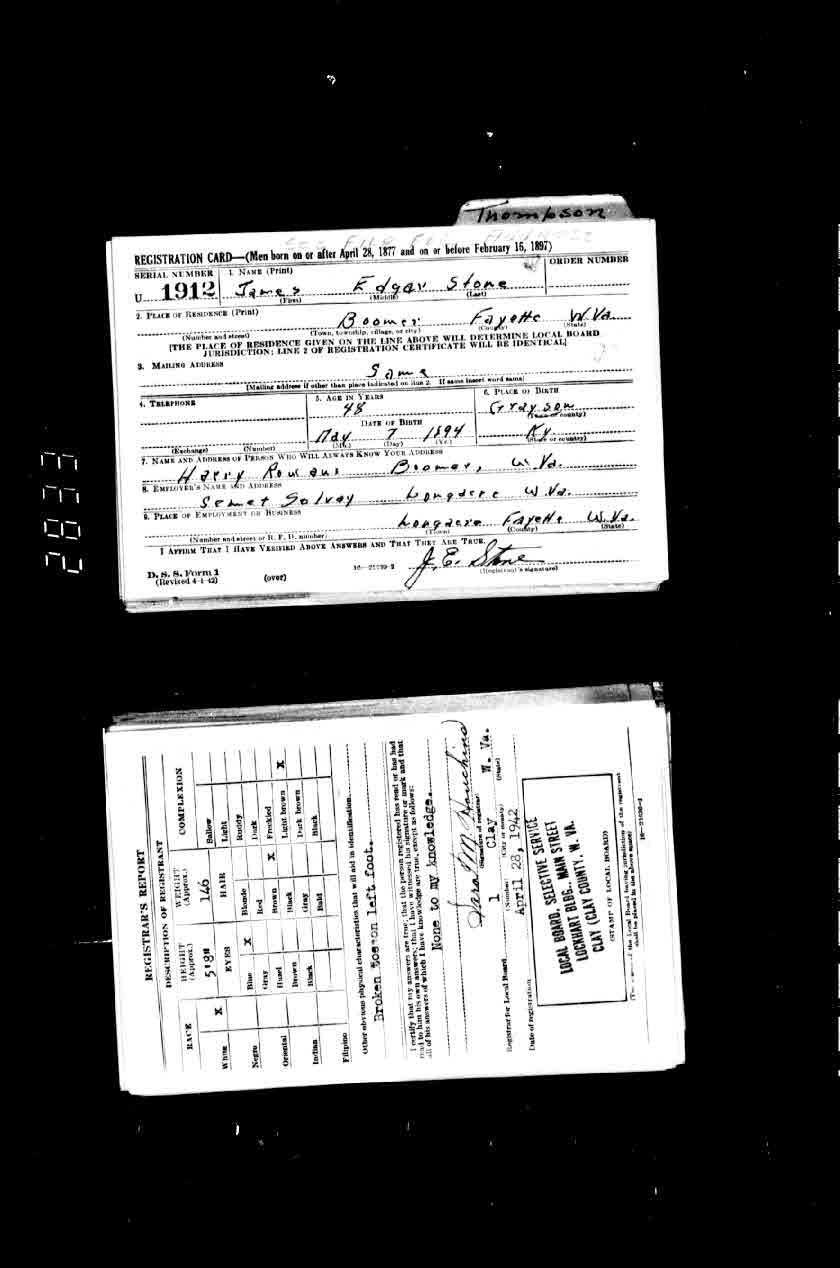 Thompson
REGISTRATION CARD—(Men born on or after April 28, 1877 and on or before February 16, 1897)
SERIAL NUMBER 1. NAME (Print) ORDER NUMBER
U 1912 James Edgar Stone
(First) (Middle) (Last)
2. PLACE OF RESIDENCE (Print)
Boomer Fayette W.Va.
(Number and street) (Town, township, village, or city) (County) (State)
[THE PLACE OF RESIDENCE GIVEN ON THE LINE ABOVE WILL DETERMINE LOCAL BOARD
JURISDICTION; LINE 2 OF REGISTRATION CERTIFICATE WILL BE IDENTICAL]
3. MAILING ADDRESS
Same
[Mailing address if other than place indicated on line 2. If same insert word same]
4. TELEPHONE 5. AGE IN YEARS 6. PLACE OF BIRTH
48 Grayson
DATE OF BIRTH (Town or county)
May 7 1894 Ky
(Exchange) (Number) (Mo.) (Day) (Yr.) (State or country)
7. NAME AND ADDRESS OF PERSON WHO WILL ALWAYS KNOW YOUR ADDRESS
Harry Rowans Boomer, W.Va.
8. EMPLOYER'S NAME AND ADDRESS
Semet Solvay Longacre W.Va.
9. PLACE OF EMPLOYMENT OR BUSINESS
Longacre Fayette W.Va.
(Number and street or R. F. D. number) (Town) (County) (State)
I AFFIRM THAT I HAVE VERIFIED ABOVE ANSWERS AND THAT THEY ARE TRUE.
J. E. Stone
D. S. S. Form 1
(Revised 4-1-42) (over) 16—21630-2 (Registrant's signature)
REGISTRAR'S REPORT
DESCRIPTION OF REGISTRANT
RACE HEIGHT (Approx.) WEIGHT (Approx.) COMPLEXION
5'8" 146
White X EYES HAIR Sallow
Light
Negro Blue X Blonde Ruddy
Gray Red Dark
Oriental Hazel Brown X Freckled
Brown Black Light brown X
Indian Black Gray Dark brown
Bald Black
Filipino
Other obvious physical characteristics that will aid in identification
Broken toe on left foot.
I certify that my answers are true; that the person registered has read or has had
read to him his own answers; that I have witnessed his signature or mark and that
all of his answers of which I have knowledge are true, except as follows:
None to my knowledge.
Sara M. Houchins
(Signature of registrar)
Registrar for Local Board 1 Clay W. Va.
(Number) (City or county) (State)
Date of registration April 28, 1942
LOCAL BOARD, SELECTIVE SERVICE
LOCKHART BLDG., MAIN STREET
CLAY (CLAY COUNTY, W. VA.
(STAMP OF LOCAL BOARD)
of the Local Board having jurisdiction of the registrant
shall be placed in the above space)
16—21630-1